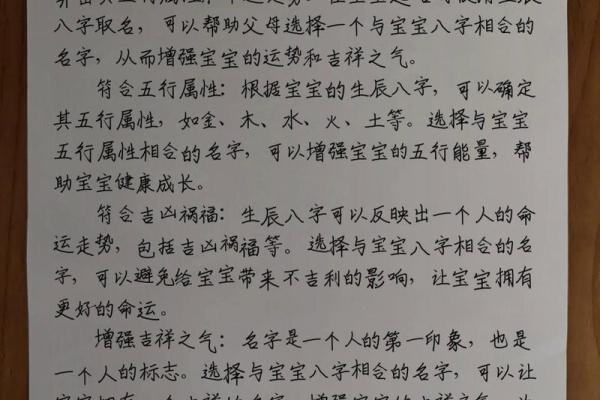 八字取名，可以帮助父母选择一个与宝宝八字相合的
名字，从而增强宝宝的运势和吉祥之气。
符合五行属性：根据宝宝的生辰八字，可以确定
其五行属性，如金、木、水、火、土等。选择与宝宝
五行属性相合的名字，可以增强宝宝的五行能量，帮
助宝宝健康成长。
符合吉凶祸福：生辰八字可以反映出一个人的命
运走势，包括吉凶祸福等。选择与宝宝八字相合的名
字，可以避免给宝宝带来不吉利的影响，让宝宝拥有
更好的命运。
增强吉祥之气：名字是一个人的第一印象，也是
一个人的标志。选择与宝宝八字相合的名字，可以让